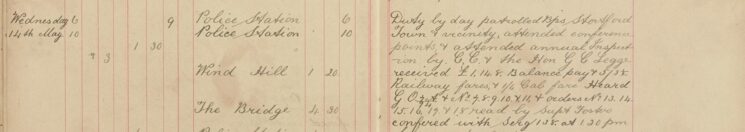 Wednesday 6 9 Police Station 6 Duty by day patrolled Bps Stortford
14th May 10 Police Station 10 Town & vicinity, attended conference
1 30 points, & attended annual Inspect
9 3 ion by C, C, & the Hon G C Legge
Wind Hill 1 30 received £1,14,8 Balance pay &
Railway fares, & 1/6 Cab fare Heard
G O & Nos 7.8.9.10 & 11, & orders Nos 13.14
The Bridge 4 30 15.16 & 18 read by Supt Foster
confered with Serg 138. at 1 30 pm